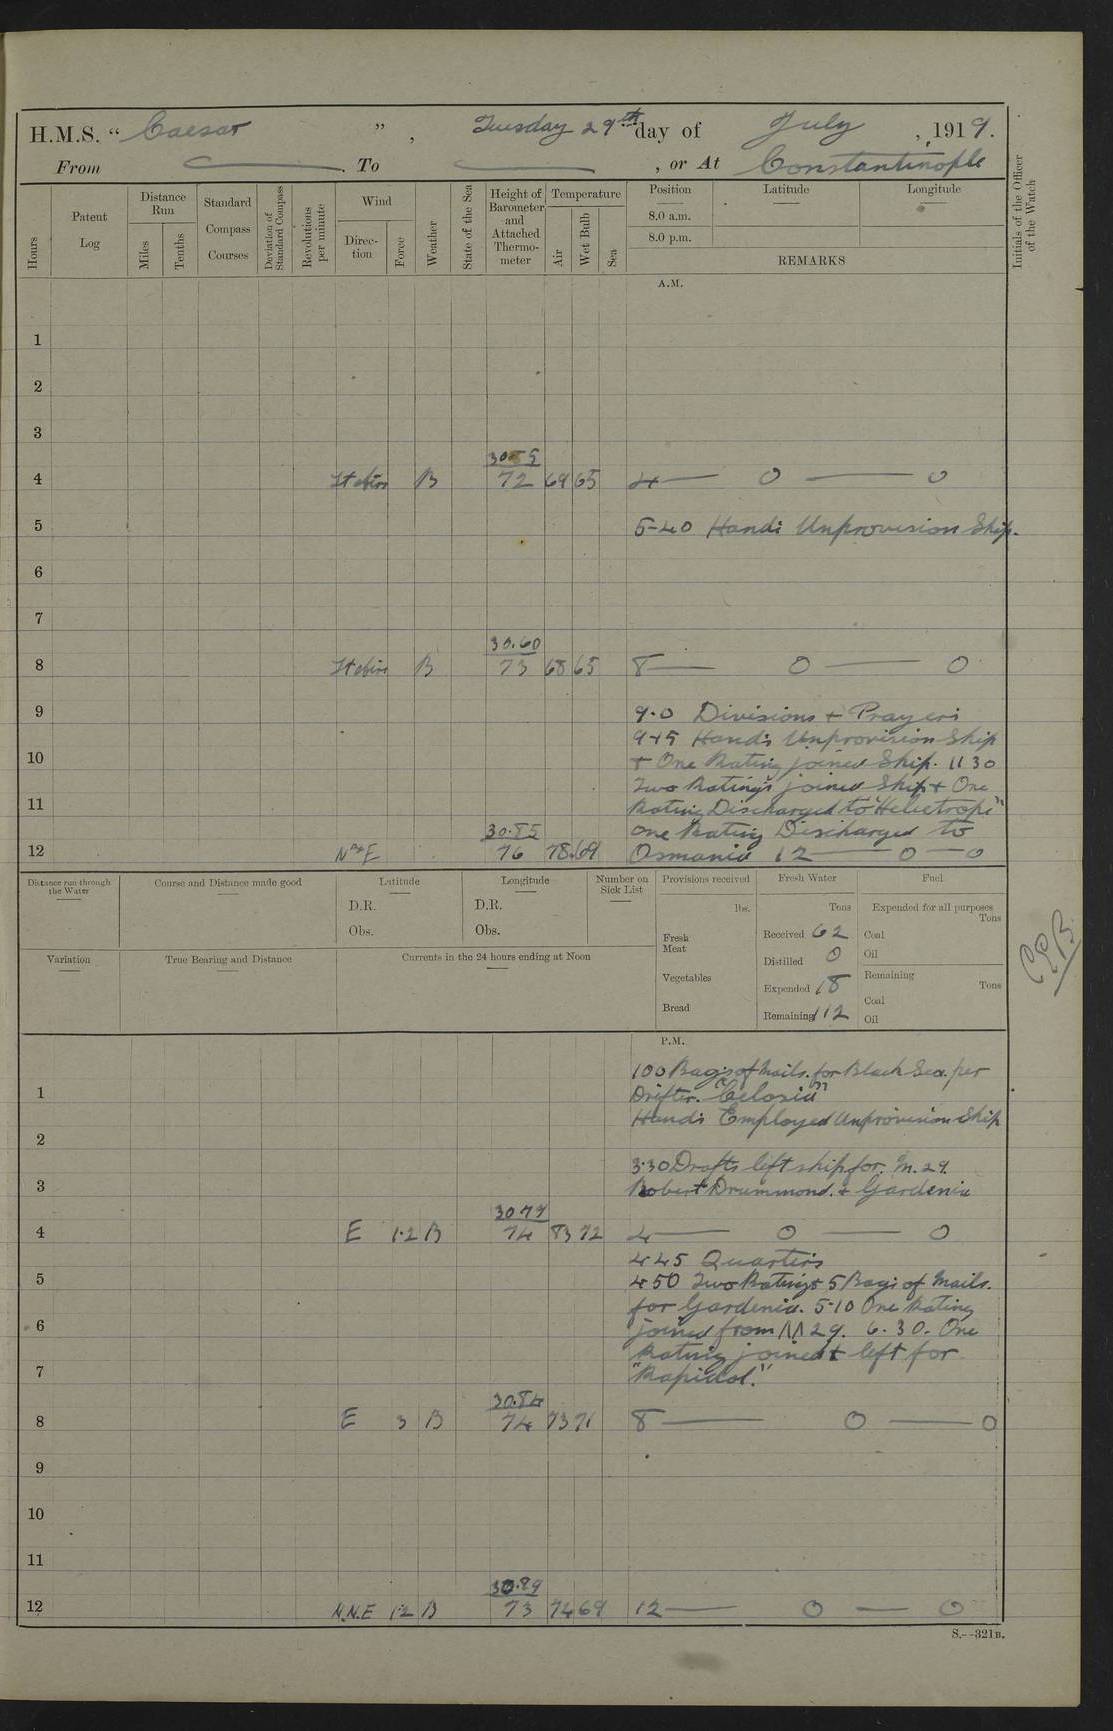 H.M.S. “ Caesar ” , Tuesday 29th day of July , 1919.
From . To , or At Constantinople
Hours
Patent Log
Distance Run
Miles
Tenths
Standard Compass Courses
Deviation of Standard Compass
Revolutions per minute
Wind
Direc-tion
Force
Weather
State of the Sea
Height of Barometer and Attached Thermo-meter
Temperature
Air
Wet Bulb
Sea
Position Latitude Longitude
8.0 a.m.
8.0 p.m.
REMARKS
Initials of the Officer of the Watch
A.M.
1
2
3
30.55
4 B 72 69 65 4 — 0 — 0
5 5-40 Hands Unprovision Ship.
6
7
30.60
8 B 73 68 65 8 — 0 — 0
9 9.0 Divisions + Prayers
9 45 Hands Unprovision Ship
10 + One Rating joined Ship. 11 30
Two Ratings joined Ship + One
11 Rating Discharged to "Heliotrope"
30.85 one Rating Discharged to
12 76 78.69 Osmanid 12 — 0 — 0
Distance run through the Water
Course and Distance made good
Latitude
D.R.
Obs.
Longitude
D.R.
Obs.
Number on Sick List
Provisions received
lbs.
Fresh Meat
Vegetables
Bread
Fresh Water
Tons
Received 62
Distilled 0
Expended 18
Remaining 112
Fuel
Expended for all purposes
Tons
Coal
Oil
Remaining
Tons
Coal
Oil
Variation
True Bearing and Distance
Currents in the 24 hours ending at Noon
P.M.
100 Bags of Mails. for Black Sea. per
1 Drifter. "Celosia"
Hands Employed Unprovision Ship
2
3.30 Drafts left ship for. M. 29.
3 Robert Drummond. + Gardenia
30 79
4 E 1.2 B 74 83 72 4 — 0 — 0
4 45 Quarters
5 4 50 Two Ratings 5 Bags of Mails.
for Gardenia. 5-10 One Rating
6 joined from M 29. 6.30. One
Rating joined + left for
7 "Rapidol."
30.84
8 E 3 B 74 73 71 8 — 0 — 0
9
10
11
30.89
12 N.N.E 1.2 B 73 74 69 12 — 0 — 0
S.—321B.